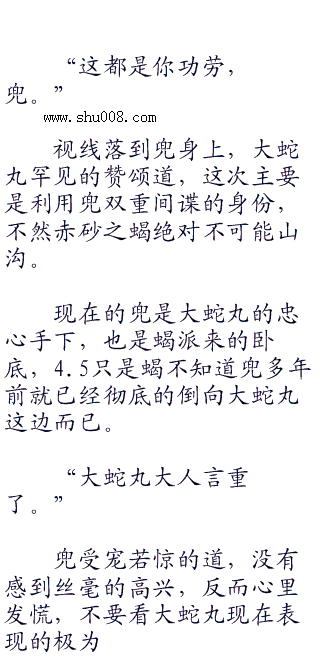 “这都是你功劳，
兜。”
www.shu008.com
视线落到兜身上，大蛇
丸罕见的赞颂道，这次主要
是利用兜双重间谍的身份，
不然赤砂之蝎绝对不可能山
沟。
现在的兜是大蛇丸的忠
心手下，也是蝎派来的卧
底，4.5只是蝎不知道兜多年
前就已经彻底的倒向大蛇丸
这边而已。
“大蛇丸大人言重
了。”
兜受宠若惊的道，没有
感到丝毫的高兴，反而心里
发慌，不要看大蛇丸现在表
现的极为